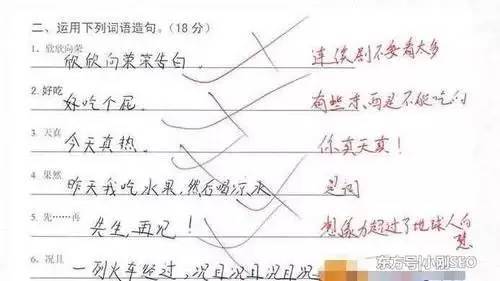 二、运用下列词语造句。(18分)
1. 欣欣向荣
欣欣向荣荣告白。
连续剧不要看太多
2. 好吃
好吃个屁。
有些东西是不能吃的
3. 天真
今天真热。
你真天真!
4. 果然
昨天我吃水果,然后喝凉水
是词
5. 先……再
先生,再见!
想像力超过了地球人的想
6. 况且
一列火车经过,况且况且况且况
东方号|小刚SEO